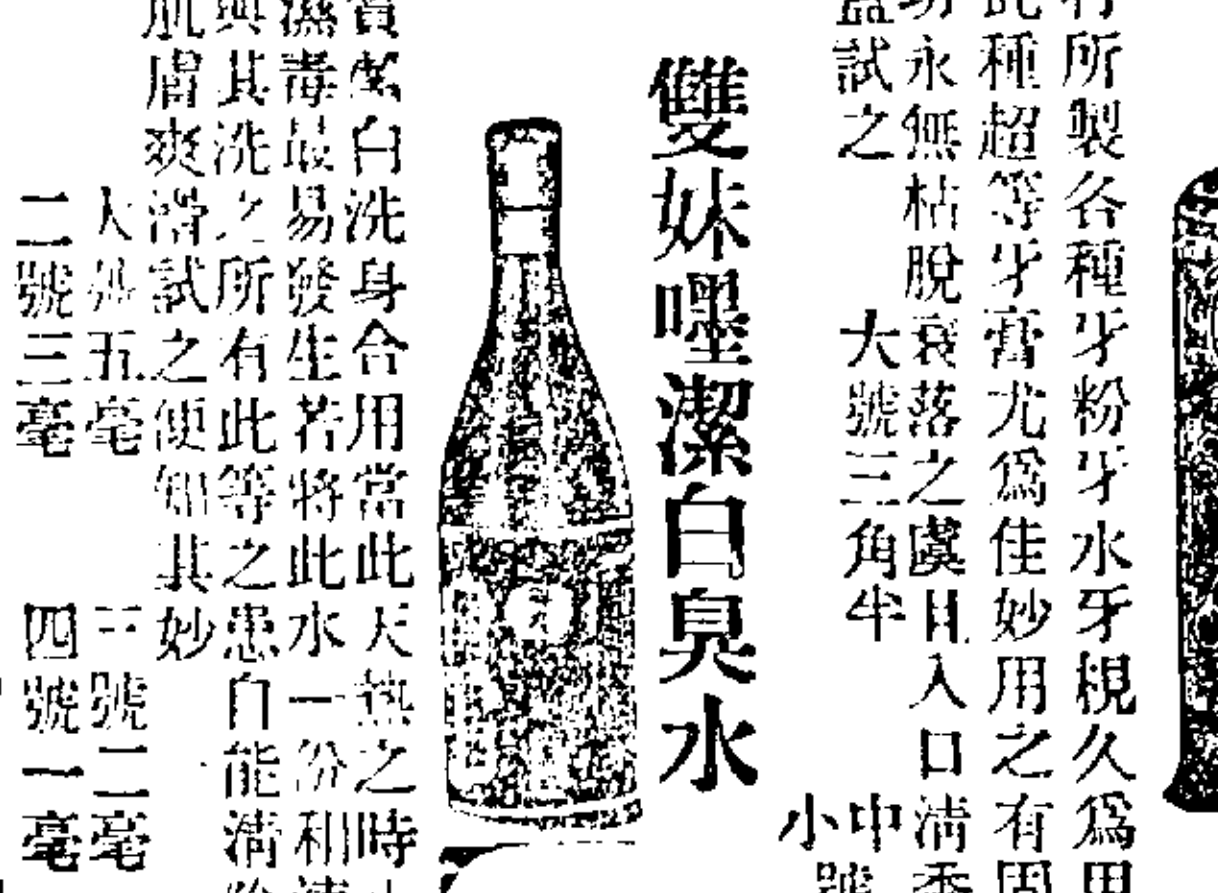 所製各種牙粉牙水牙梘久為用
此種超等牙膏尤為佳妙用之有因
永無枯脫衰落之虞且入口清香
試之
大號三角半
中號
小
雙妹嚜潔白臭水
潔白洗身合用當此天熱之時
濕毒最易發生若將此水一份和清
與其洗之所有此等之患自能清除
肌膚爽滑試之便知其妙
大號五毫
三號二毫
二號三毫
四號一毫